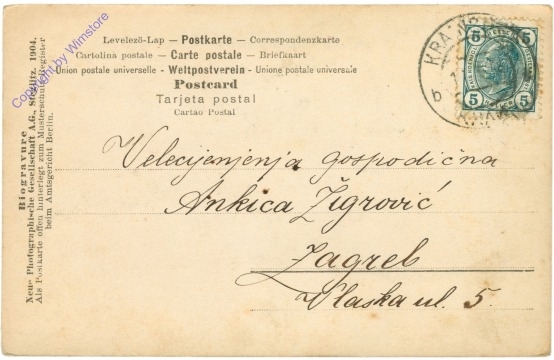 Levelező-Lap — Postkarte — Correspondenzkarte
Cartolina postale — Carte postale — Briefkaart
Union postale universelle — Weltpostverein — Unione postale universale
Postcard
Tarjeta postal
Cartao Postal
Velecijenjenja gospodična
Ankica Žigrović
Zagreb
Vlaska ul. 5.
Biogravure
Neue Photographische Gesellschaft A.G., Steglitz. 1904.
Als Postkarte offen hinterlegt zum Musterschutz-Register
beim Amtsgericht Berlin.
Copyright by Wimstore
5 5
5 5
b